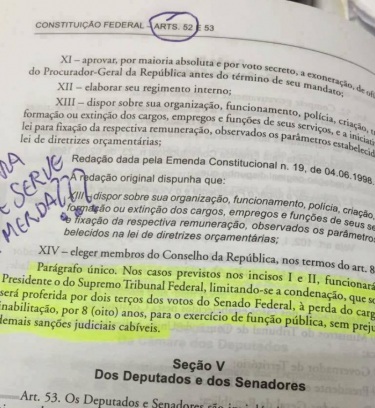 CONSTITUIÇÃO FEDERAL - ARTS. 52 E 53
XI – aprovar, por maioria absoluta e por voto secreto, a exoneração, de
do Procurador-Geral da República antes do término de seu mandato;
XII – elaborar seu regimento interno;
XIII – dispor sobre sua organização, funcionamento, polícia, criação,
formação ou extinção dos cargos, empregos e funções de seus serviços, e a
lei para fixação da respectiva remuneração, observados os parâmetros
lei de diretrizes orçamentárias;
Redação dada pela Emenda Constitucional n. 19, de 04.06.1998.
A redação original dispunha que:
XIII - dispor sobre sua organização, funcionamento, polícia, criação,
formação ou extinção dos cargos, empregos e funções de seus
e fixação da respectiva remuneração, observados os parâmetros
belecidos na lei de diretrizes orçamentárias;
SERVE
XIV – eleger membros do Conselho da República, nos termos do art.
Parágrafo único. Nos casos previstos nos incisos I e II, funcionará
Presidente o do Supremo Tribunal Federal, limitando-se a condenação, que
será proferida por dois terços dos votos do Senado Federal, à perda do
inabilitação, por 8 (oito) anos, para o exercício de função pública, sem
demais sanções judiciais cabíveis.
Seção V
Dos Deputados e dos Senadores
Art. 53. Os Deputados e Senadores são